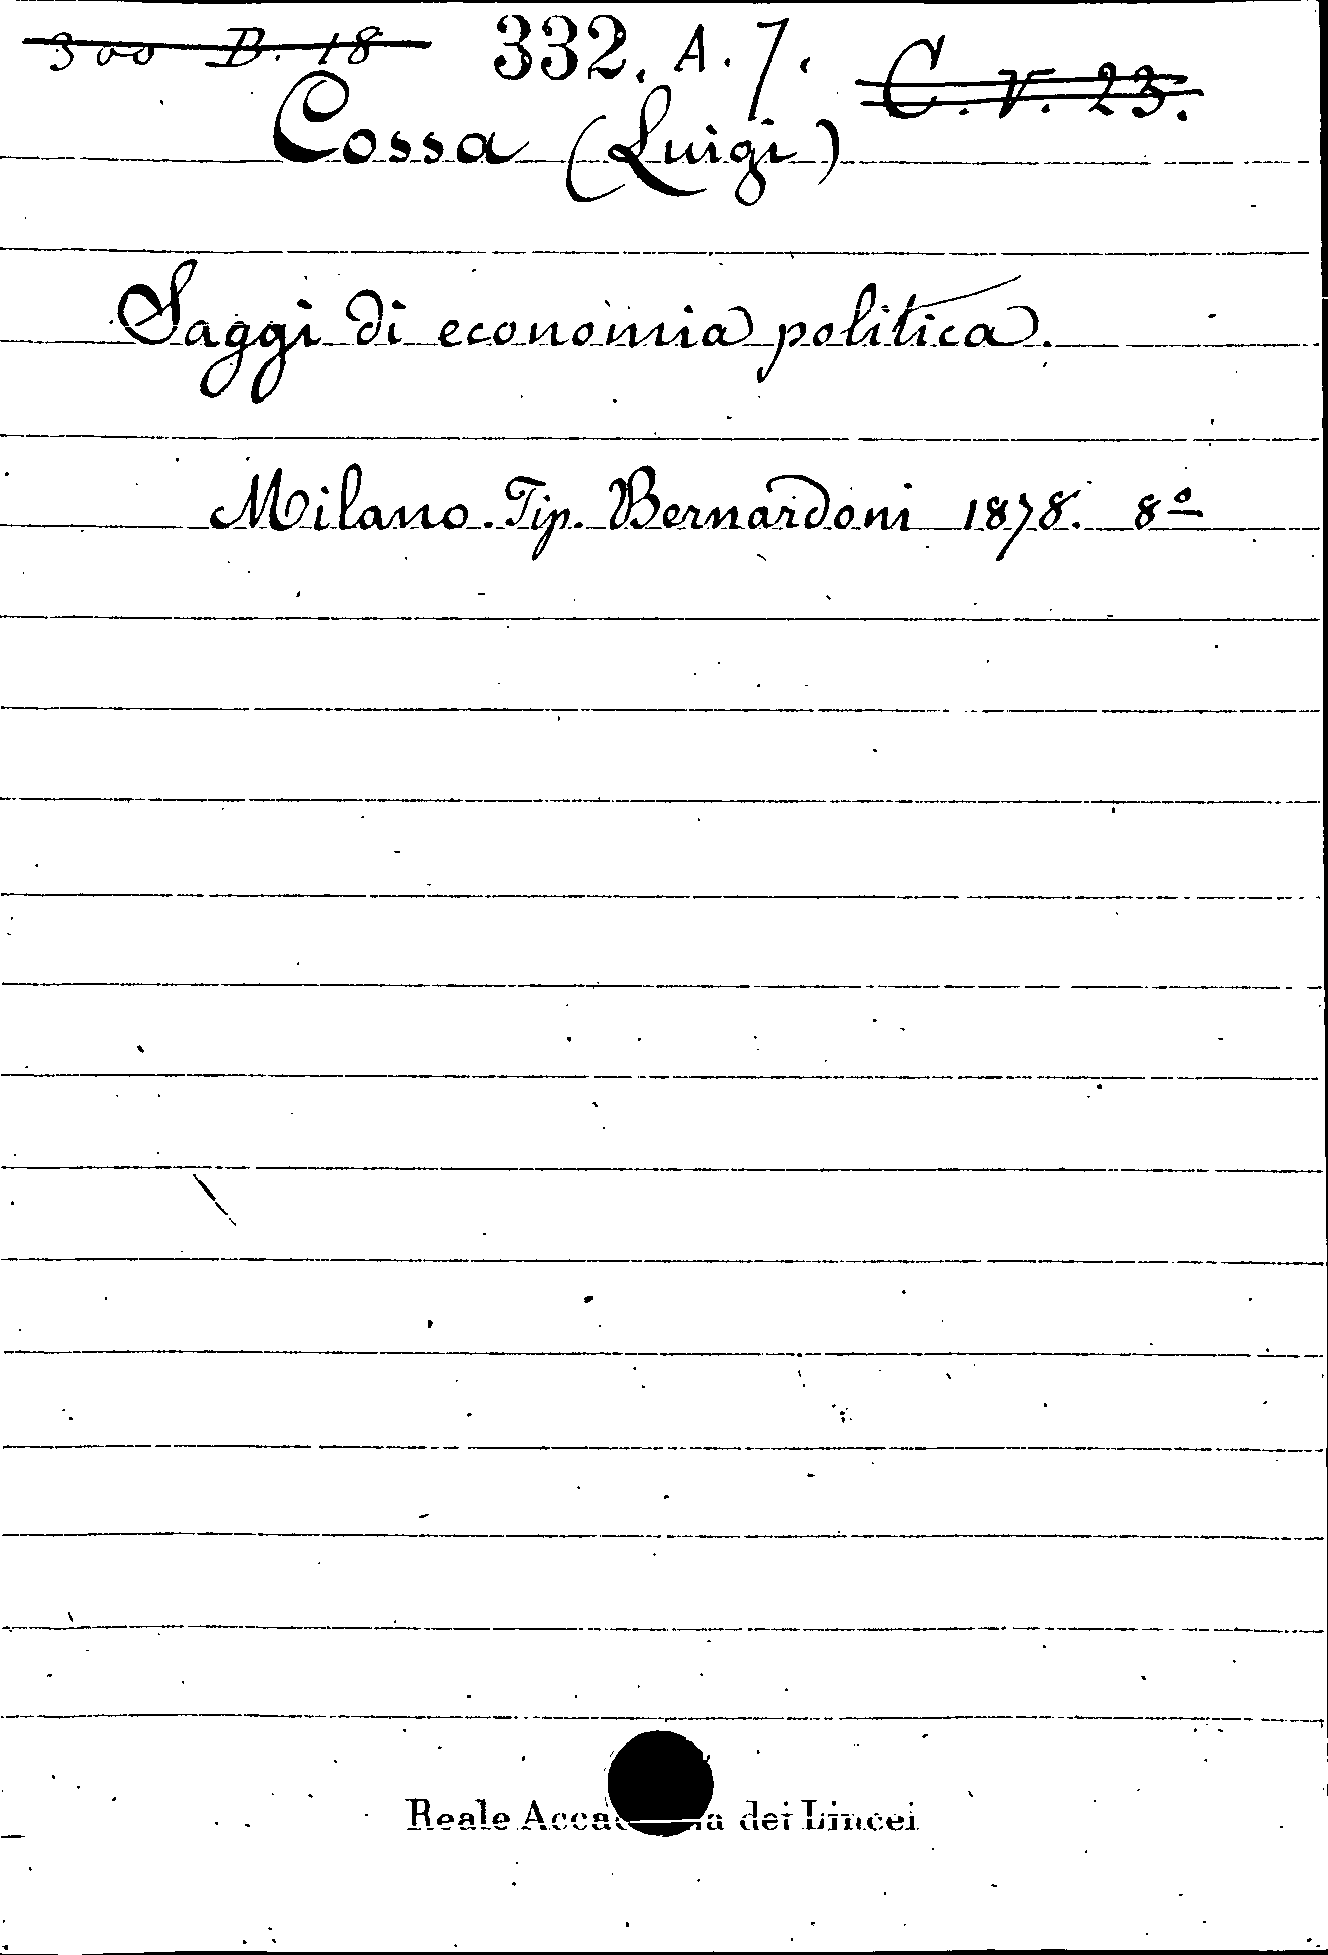 300 B. 18 332. A. 7. C. V. 23.
Cossa (Luigi)
Saggi di economia politica.
Milano. Tip. Bernardoni 1878. 8º
Reale Accademia dei Lincei